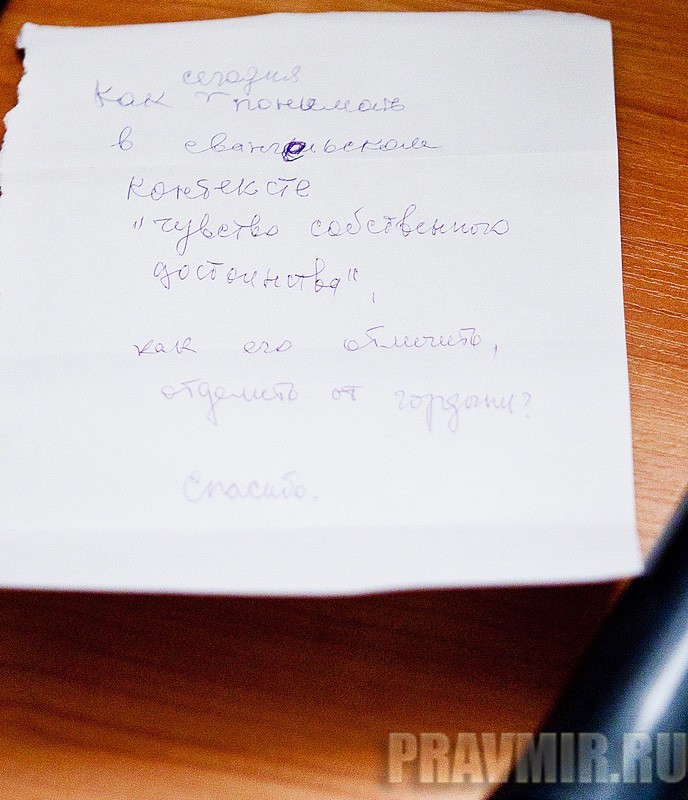 сегодня
Как понимать
в евангельском
контексте
"чувство собственного
достоинства",
как его отличить,
отделить от гордыни?
Спасибо.
PRAVMIR.RU